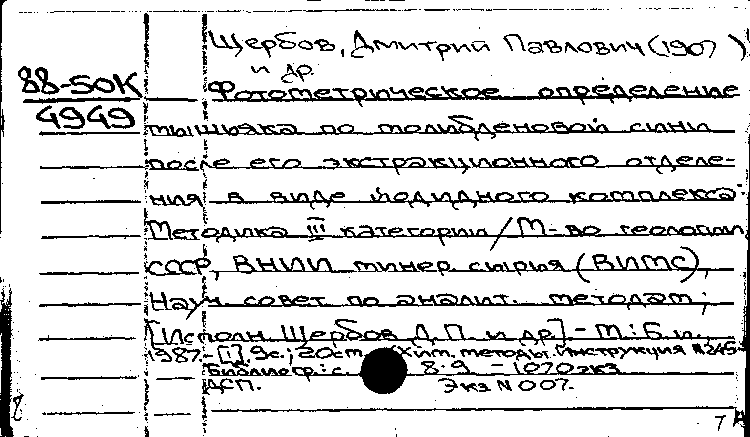 Щербов, Дмитрий Павлович (1907 )
и др.
88-50К
4949
Фотометрическое определение
мышьяка по молибденовой сини
после его экстракционного отделе-
ния в виде йодидного комплекса:
Методика III категории / М-во геологии
СССР, ВНИИ минер. сырья (ВИМС),
Науч. совет по аналит. методам;
[Исполн. Щербов Д.П. и др.] - М.: Б.и.
1987. - [1], 9 с.; 20 см. (Хим. методы. Инструкция N 245-
Библиогр.: с. 8-9 - 1070 экз
ДСП. Экз N 007.